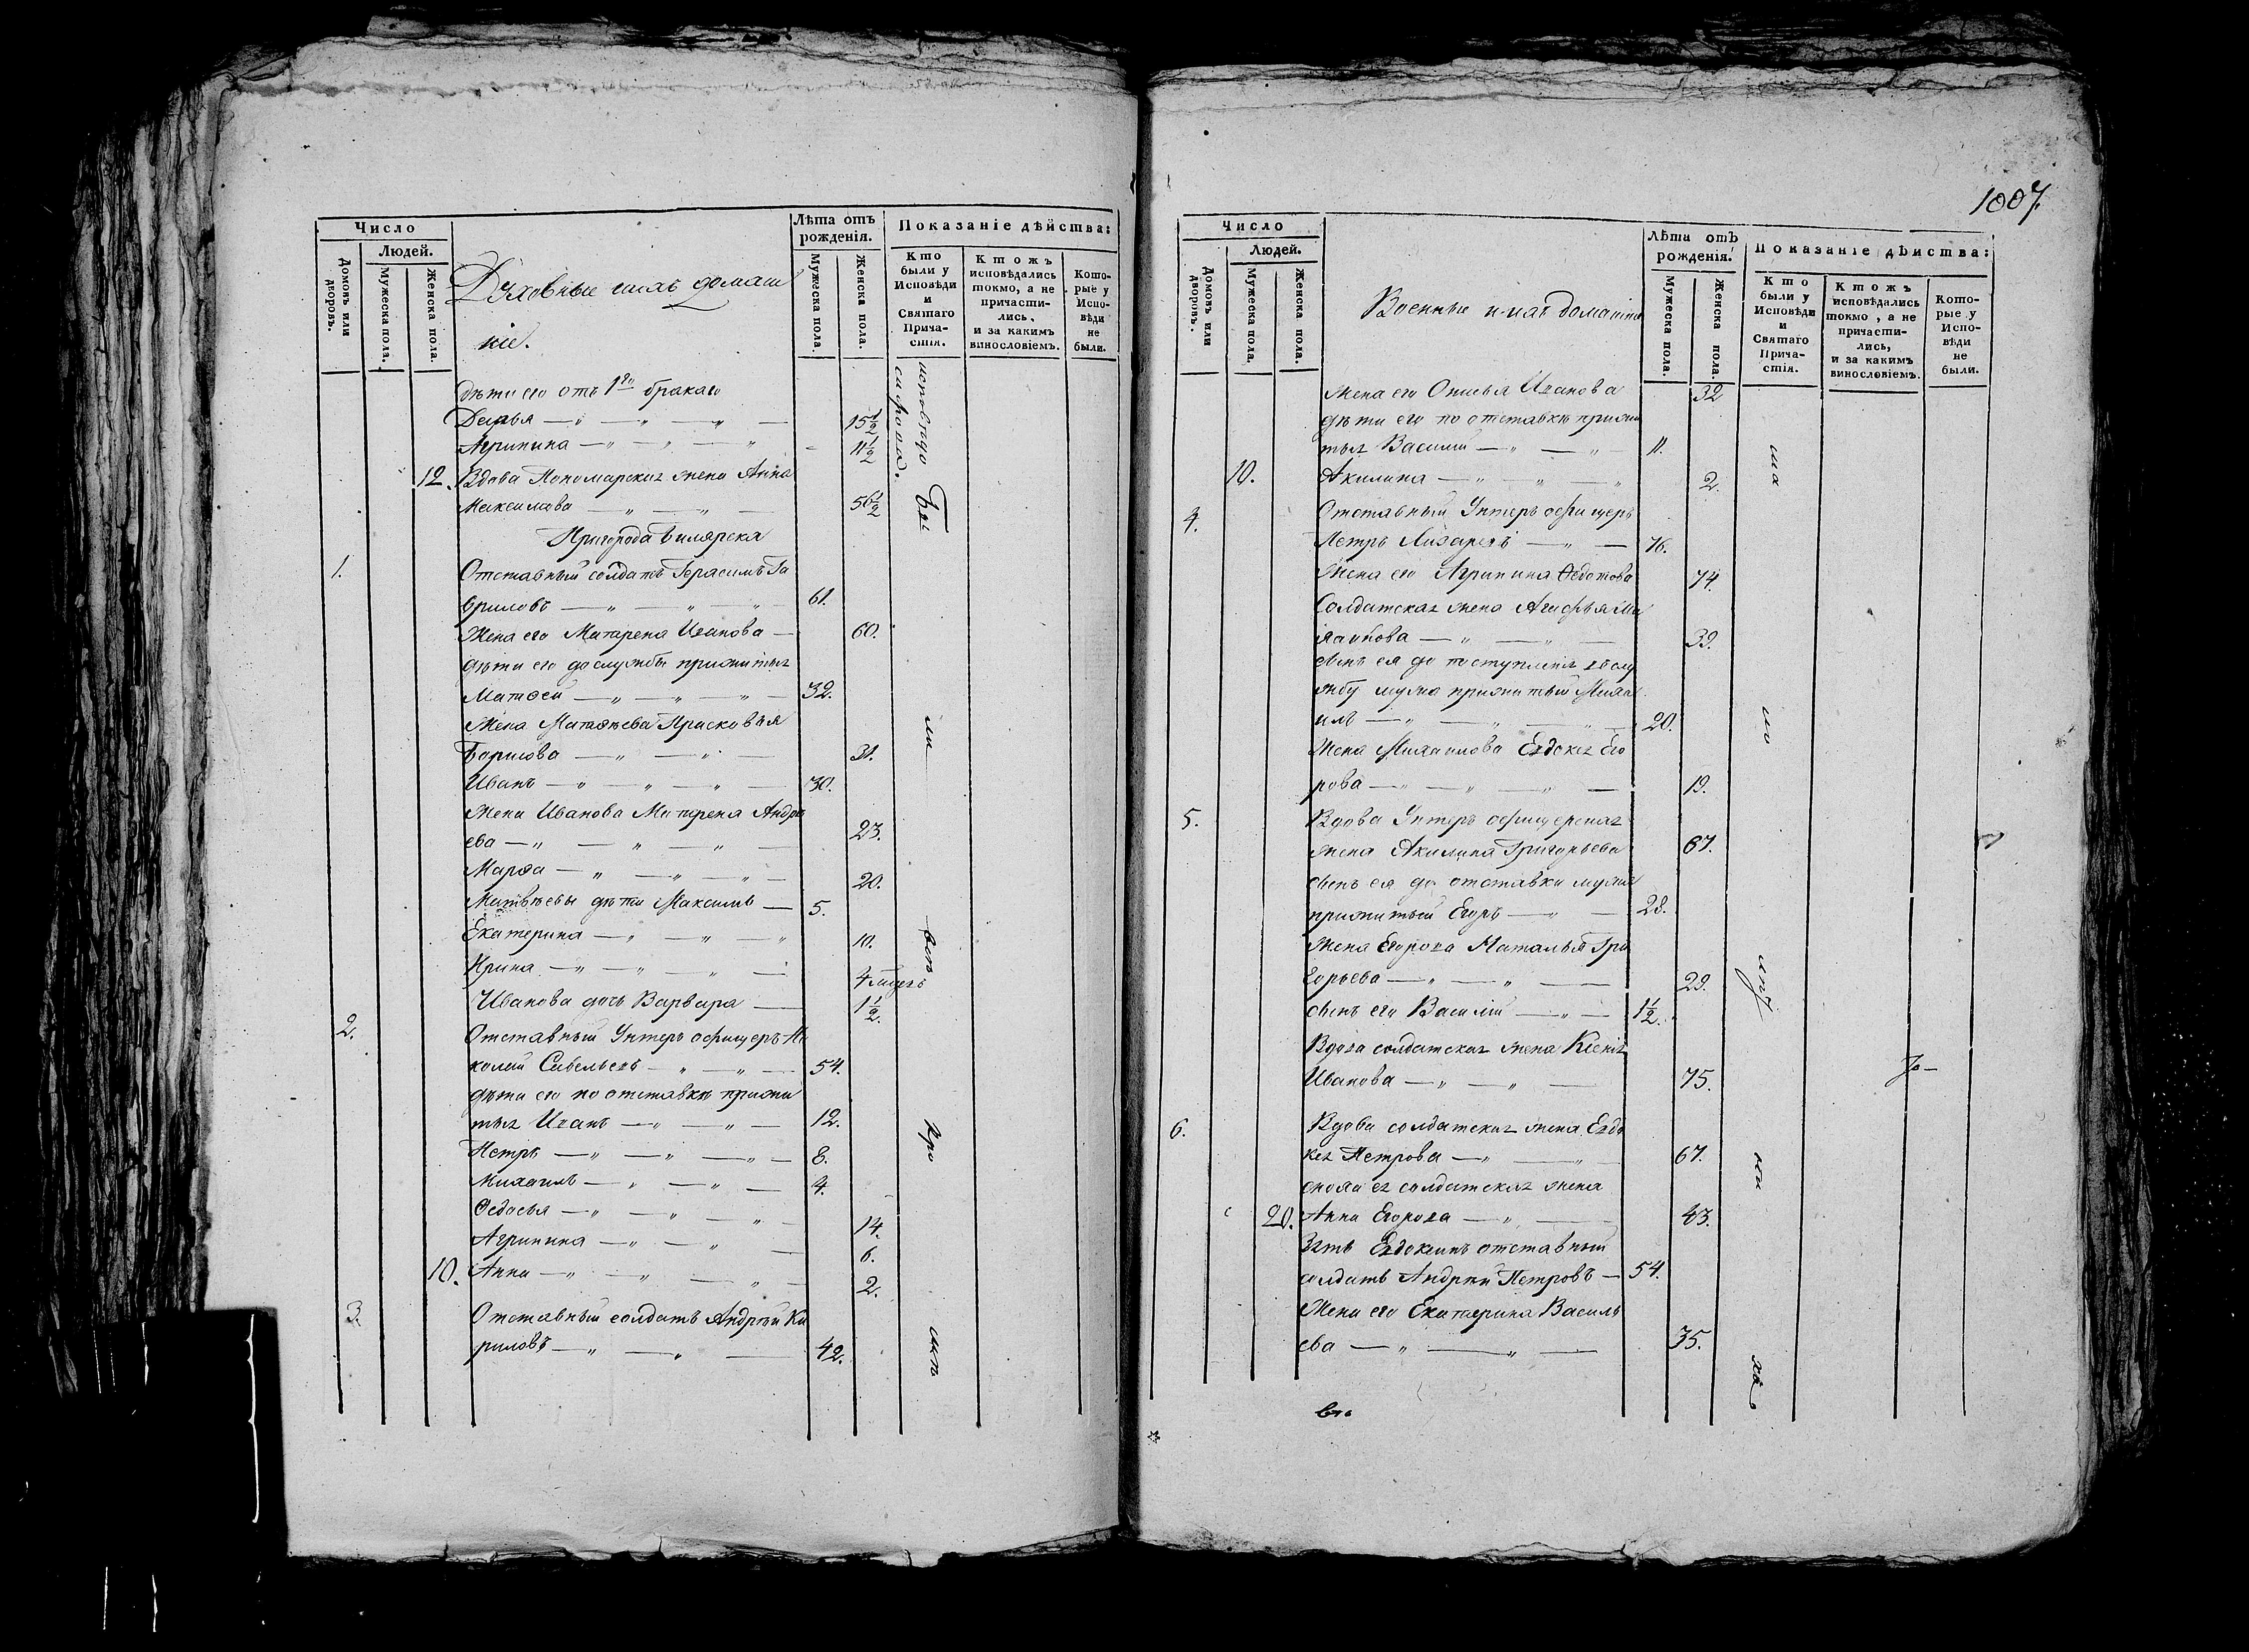 Число
Людей.
Домовъ или дворовъ.
Мужеска пола.
Женска пола.
Духовные ихъ домаш
ніе.
Лѣта отъ рожденія.
Мужеска пола.
Женска пола.
Показаніе дѣйства:
Кто были у Исповѣди и Святаго Прича-стія.
Ктожъ исповѣдались токмо, а не причасти-лись, и за какимъ винословіемъ.
Кото-рые у Испо-вѣди не были.
дѣти его отъ 1го брака
Дарья 15½
Агрипина 11½
12. Вдова Пономарская жена Анна
Максимова 56½
Пригорода Билярска
1. Отставный солдатъ Герасимъ Га
вриловъ 61.
Жена его Матарена Иванова 60.
дѣти его до службы прижитыя
Матвей 32.
Жена Матвѣева Прасковья
Борисова 31.
Иванъ 30.
Жена Иванова Матарена Андре
ева 23.
Марѳа 20.
Матвѣевы дѣти Максимъ 5.
Екатерина 10.
Ирина 4
Иванова дочь Варвара 1½.
2. Отставный Унтеръ офицеръ Ни
колай Савельевъ 54.
дѣти его по отставкѣ прижи
тыя Иванъ 12.
Петръ 8.
Михаилъ 4.
Ѳедосья 14.
Агрипина 6.
10. Анна 2.
3. Отставный солдатъ Андрей Ки
риловъ 42.
Бы
ли
всѣ
1007.
Число
Людей.
Домовъ или дворовъ.
Мужеска пола.
Женска пола.
Военные и ихъ домашніе
Лѣта отъ рожденія.
Мужеска пола.
Женска пола.
Показаніе дѣйства:
Кто были у Исповѣди и Святаго Прича-стія.
Ктожъ исповѣдались токмо, а не причасти-лись, и за какимъ винословіемъ.
Кото-рые у Испо-вѣди не были.
Жена его Иванова 32
дѣти его по отставкѣ прижи
тыя Василій 11.
10. Акилина 2.
4. Отставный Унтеръ офицеръ
Петръ Лазаревъ 76.
Жена его Агрипина Ѳедотова 74.
Солдатская жена Агафья Ми
хаилова 39.
сынъ ея до поступленія въ слу
жбу мужа прижитый Миха
илъ 20.
Жена Михаилова Евдокия Его
рова 19.
5. Вдова Унтеръ офицерская
жена Акилина Григорьева 67.
сынъ ея до отставки мужа
прижитый Егоръ 28.
Жена Егорова Наталья Гри
горьева 29.
сынъ его Василій 1½.
Вдова солдатская жена Ксения
Иванова 75.
6. Вдова солдатская жена Евдо
кия Петрова 67.
сноха ея солдатская жена
20. Анна Егорова 43.
Зять Евдокиинъ отставный
солдатъ Андрей Петровъ 54.
Жена его Екатерина Василь
ева 35.